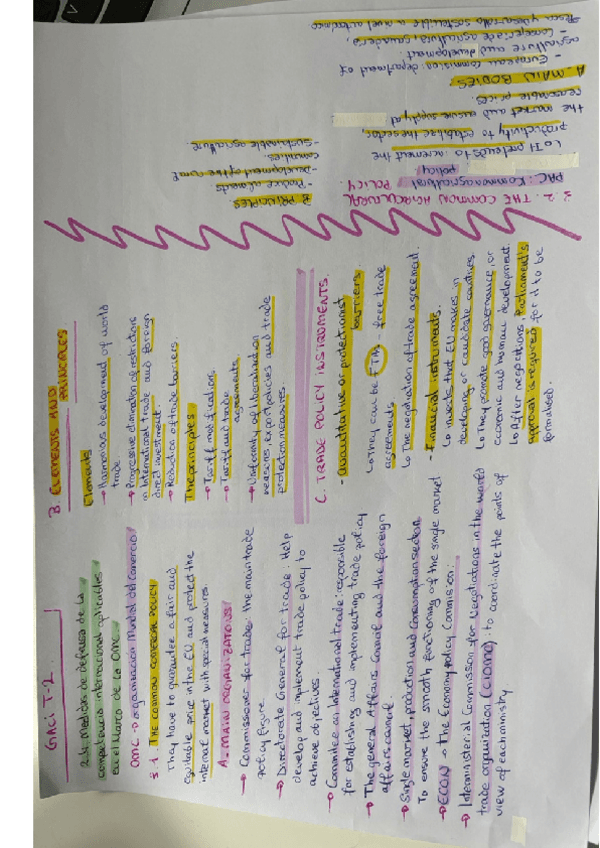 GACI T-2
2.1. Medidas de defensa de la
competencia internacional aplicables
en el Marco de la OMC.
OMC → Organización Mundial del Comercio
3.1. THE COMMON COMERCIAL POLICY
They have to guarantee a fair and
equitable price in the EU and protect the
internal market with special measures.
A. MAIN ORGANIZATIONS
→ Commissioner for trade: the main trade
policy figure.
→ Directorate General for trade: Help
develop and implement trade policy to
achieve objectives
→ Committee on International Trade: responsible
for establishing and implementing trade policy
→ The general Affairs Council and the foreign
affairs council.
→ Single market, production and consumption section
To ensure the smooth functioning of the single market
→ ECON → The Economy policy Commission:
→ Interministerial Commission for Negotiations in the world
trade organization (CIOMC): to coordinate the points of
view of each ministry
B. ELEMENTS AND
PRINCIPLES
Elements
→ Harmonious development of world
trade.
→ Progressive elimination of restrictions
on International trade and foreign
direct investment
→ Reduction of trade barriers.
The principles
→ Tariff modifications.
→ Tariff and trade
agreements.
→ Uniformity of liberalization
measures, export policies and trade
protection measures.
C. TRADE POLICY INSTRUMENTS.
- Quantitative or protectionist
barriers.
↳ They can be FTA - free trade
agreements
↳ The negotiation of trade agreement.
- Financial instruments.
↳ invests that EU makes in
developing or candidate countries
↳ They promote good governance, or
economic and human development.
↳ After negotiations Parliament's
approval is required for it to be
formalised.
3.2. THE COMMON AGRICULTURAL
POLICY.
PAC: Kommon agricultural
policy
↳ It pretends to increment the
productivity, to establize the sector,
the market and ensure supply at
reasonable prices.
A MAIN BODIES.
- European Commision: department of
agriculture and development.
- Consejería de agricultura, ganadería,
Pesca y desarrollo sostenible a nivel autonómico
B PRINCIPLES
- Produce aliments
- Development of the rural
comunities.
- Sustainable agriculture